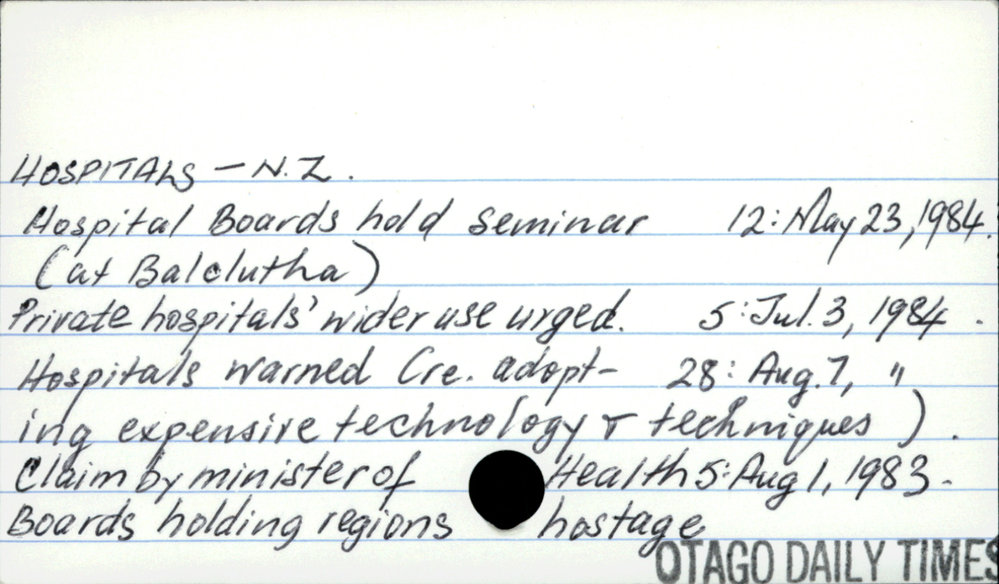 HOSPITALS - N.Z.
Hospital Boards hold seminar 12: May 23, 1984.
(at Balclutha)
Private hospitals' wider use urged. 5: Jul. 3, 1984.
Hospitals warned (re. adopt- 28: Aug. 7, "
ing expensive technology & techniques).
Claim by minister of Health 5: Aug 1, 1983.
Boards holding regions hostage
OTAGO DAILY TIMES